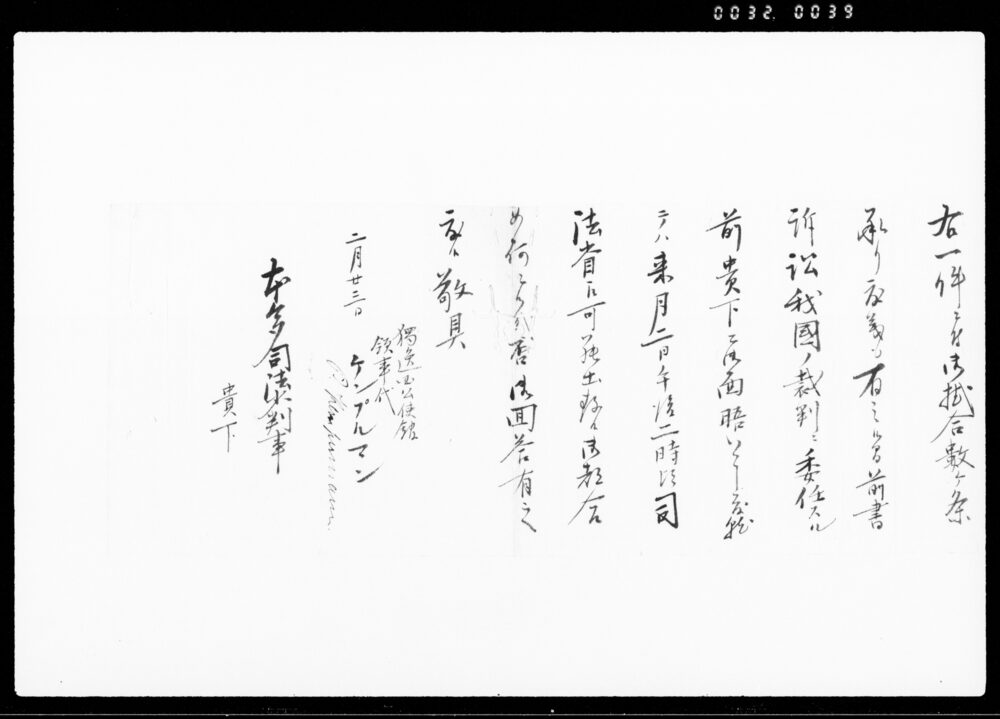 0032 0039
右一件ニ付御掛合数ヶ条
承り度義も有之候間前書
訴訟我國ノ裁判ニ委任スル
前貴下ニ御面晤いたし度就
テハ来月二日午後二時頃司
法省江可罷出致候御都合
如何ニ候哉否御回答有之
度候敬具
二月廿三日
獨逸国公使館
領事代
ケンプルマン
P Kempermann
本多司法判事
貴下